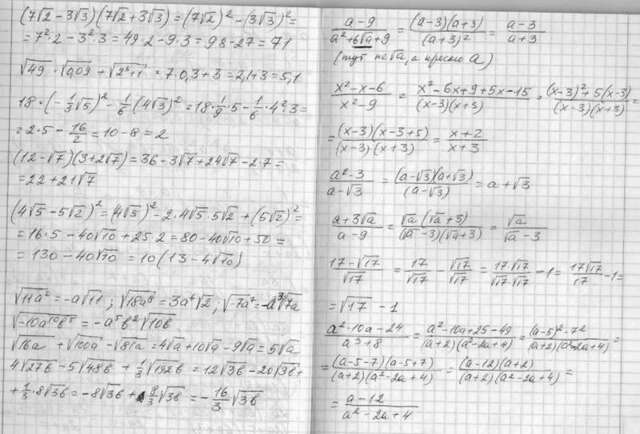 (7√2-3√3)(7√2+3√3)=(7√2)²-(3√3)²=
=7²·2-3²·3=49·2-9·3=98-27=71
√49·√0,09+√(2³+1)=7·0,3+3=2,1+3=5,1
18·(-1/3√5)²-1/6(4√3)²=18·1/9·5-1/6·4²·3=
=2·5-16/2=10-8=2
(12-√7)(3+2√7)=36-3√7+24√7-2·7=
=22+21√7
(4√5-5√2)²=(4√5)²-2·4√5·5√2+(5√2)²=
=16·5-40√10+25·2=80-40√10+50=
=130-40√10=10(13-4√10)
√11a²=-a√11; √18a⁸=3a⁴√2; √-7a⁷=-a³√7a
√-10a¹⁰b⁵=-a⁵b²√10b
√16a+√100a-√81a=4√a+10√a-9√a=5√a
4√27b-5√48b+1/3√192b=12√3b-20√3b+
+1/3·8√3b=-8√3b+8/3√3b=-16/3√3b
(a-9)/(a²+6√a+9)=((a-3)(a+3))/(a+3)²=(a-3)/(a+3)
(тут не √a, а просто a)
(x²-x-6)/(x²-9)=(x²-6x+9+5x-15)/((x-3)(x+3))=((x-3)²+5(x-3))/((x-3)(x+3))=
=((x-3)(x-3+5))/((x-3)(x+3))=(x+2)/(x+3)
(a²-3)/(a-√3)=((a-√3)(a+√3))/(a-√3)=a+√3
(a+3√a)/(a-9)=(√a(√a+3))/((√a-3)(√a+3))=√a/(√a-3)
(17-√17)/√17=17/√17-√17/√17=17√17/(√17√17)-1=17√17/17-1=
=√17-1
(a²-10a-24)/(a³+8)=(a²-10a+25-49)/((a+2)(a²-2a+4))=((a-5)²-7²)/((a+2)(a²-2a+4))=
=((a-5-7)(a-5+7))/((a+2)(a²-2a+4))=((a-12)(a+2))/((a+2)(a²-2a+4))=
=(a-12)/(a²-2a+4)